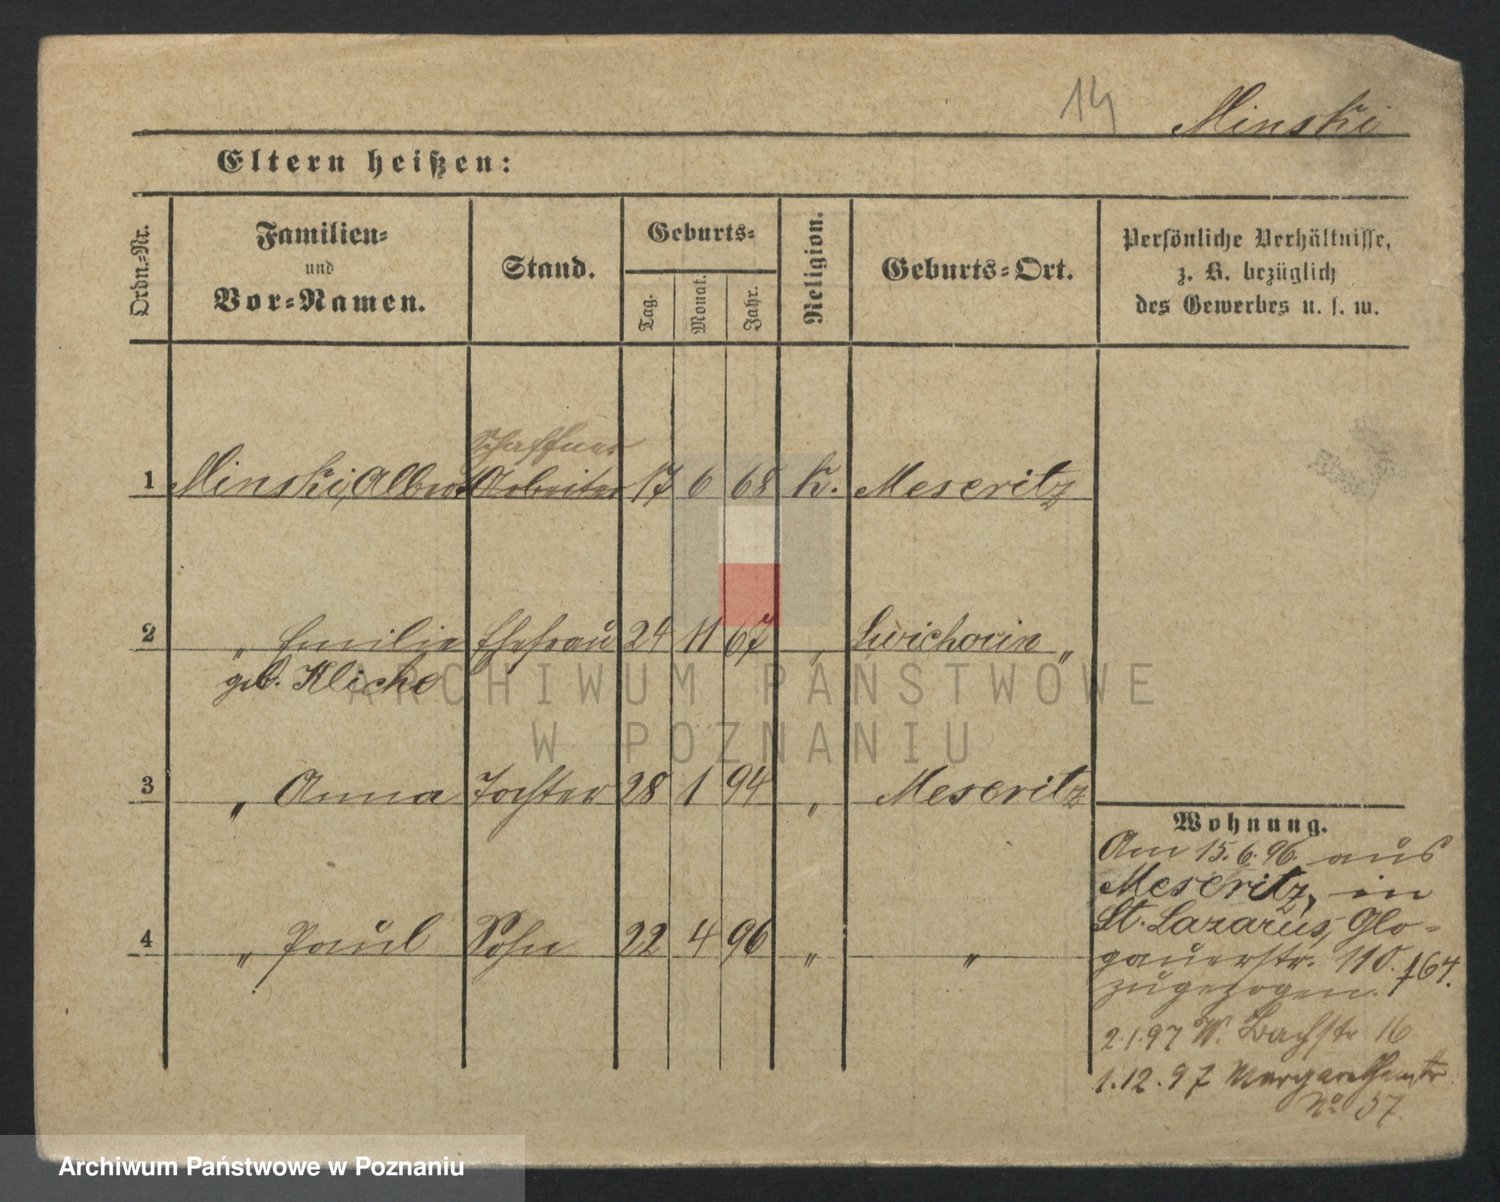 14
Minski
Eltern heißen:
Ordn.-Nr.
Familien-
und
Vor-Namen.
Stand.
Geburts-
Tag.
Monat.
Jahr.
Religion.
Geburts-Ort.
Persönliche Verhältnisse,
z. B. bezüglich
des Gewerbes u. s. w.
Schaffner
1 Minski, Arbeiter 17 6 68 K. Meseritz
2 „ Emilie Ehefrau 24 11 67 „ „
geb. Kliche
3 „ Anna Tochter 28 1 94 „ Meseritz
4 „ Paul Sohn 22 4 96 „ „
Wohnung.
Am 15.6.96. aus
Meseritz, in
St. Lazarus, Glo-
gauerstr. 110. 164.
zugezogen.
2.1.97 W. Bachstr 16
1.12.97 Margarethenstr
No 57.
ARCHIWUM PAŃSTWOWE
W POZNANIU
Archiwum Państwowe w Poznaniu